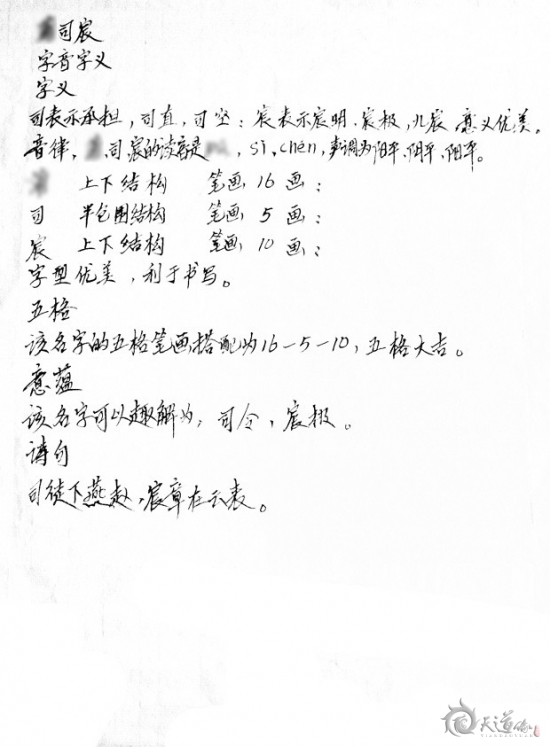 司宸
字音字义
字义
司表示承担,司直,司空;宸表示宸明、宸极,九宸,意义优美。
音律,司宸的读音是,sī,chén,声调为阳平、阴平、阳平。
上下结构 笔画 16 画;
司 半包围结构 笔画 5 画;
宸 上下结构 笔画 10 画;
字型优美,利于书写。
五格
该名字的五格笔画搭配为16-5-10,五格大吉。
意蕴
该名字可以趣解为,司令,宸极。
诗句
司徒下燕赵,宸章在云表。
天道